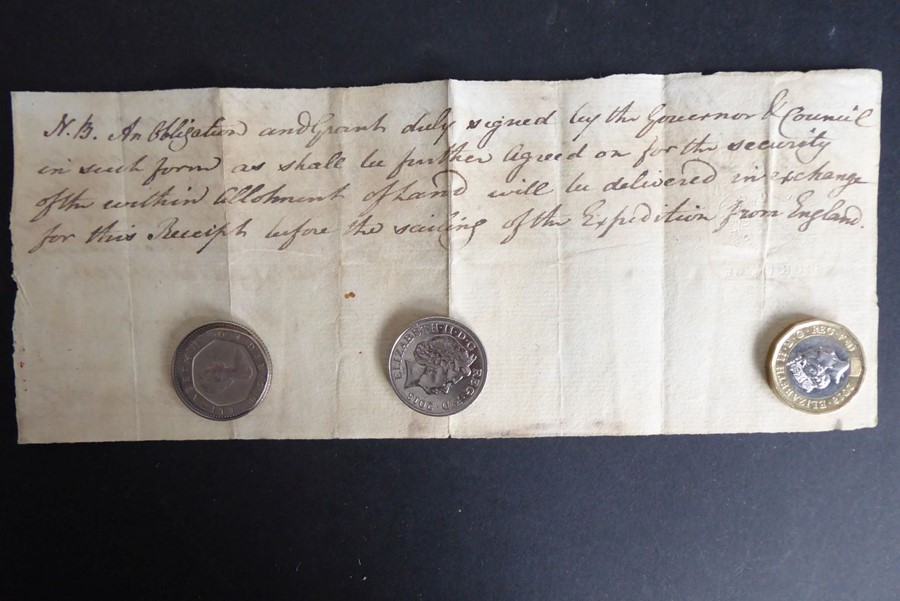 N.B. An Obligation and Grant duly signed by the Governor & Council
in such form as shall be further Agreed on for the security
of the within Allotment of Land will be delivered in exchange
for this Receipt before the sailing of the Expedition from England.
ELIZABETH·II·D·G· REG·F·D·
ELIZABETH II·D·G·REG·F·D·